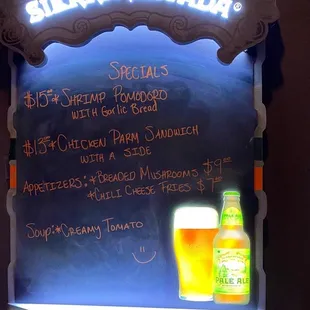 SIERRA NEVADA®
SPECIALS
$15⁰⁰* SHRIMP POMODORO
WITH GARLIC BREAD
$13⁰⁰* CHICKEN PARM SANDWICH
WITH A SIDE
APPETIZERS: *BREADED MUSHROOMS $9⁰⁰
*CHILI CHEESE FRIES $7⁰⁰
SOUP:*CREAMY TOMATO
PALE ALE